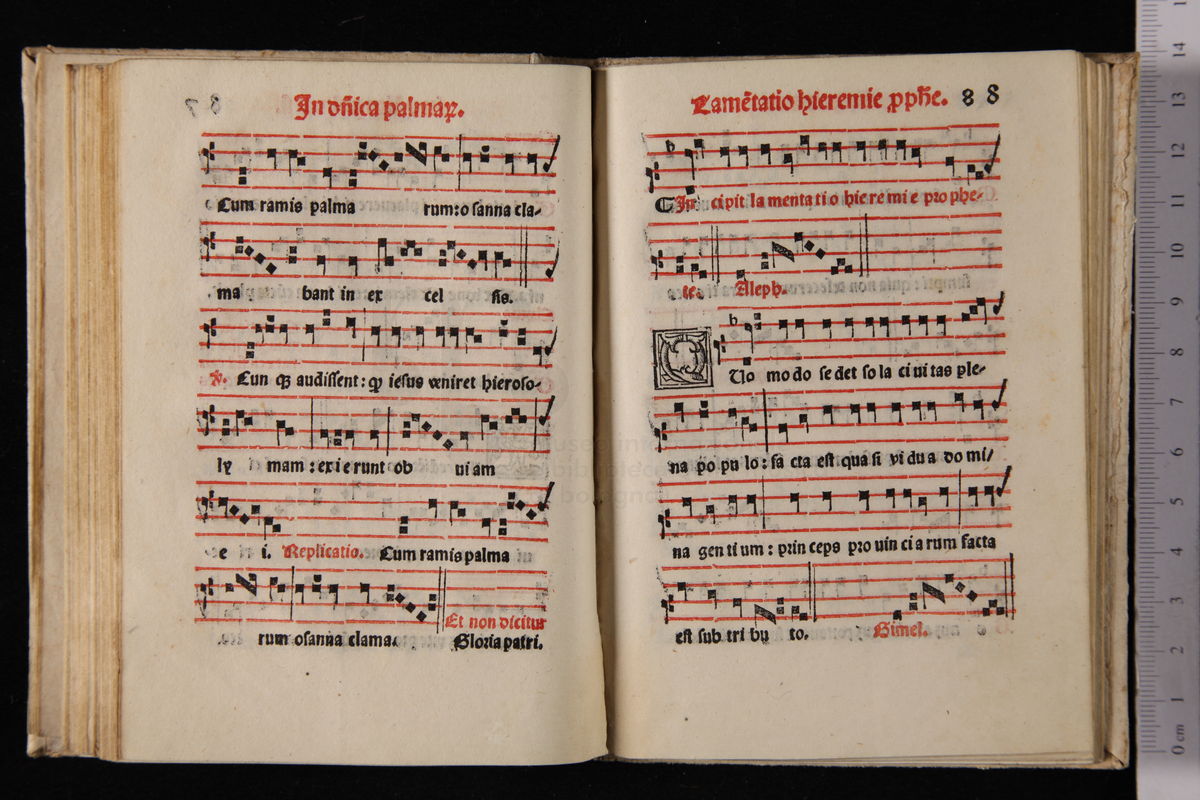 In dñica palmaꝝ.
Cum ramis palma rum: osanna cla-
ma bant in ex cel sis.
℣. Cun qȝ audissent: ꝙ iesus veniret hieroso-
ly mam: exi e runt ob ui am
e i. Replicatio. Cum ramis palma
rum osanna clama. Et non dicitur
Gloria patri.
Lamētatio hieremie ꝓphē. 88
In cipit la menta ti o hie re mi e pro phe-
te. Aleph.
Q Uo mo do se det so la ci ui tas ple-
na po pu lo: fa cta est qua si vi du a do mi/
na gen ti um: prin ceps pro uin ci a rum facta
est sub tri bu to. Gimel.
0 cm 1 2 3 4 5 6 7 8 9 10 11 12 13 14